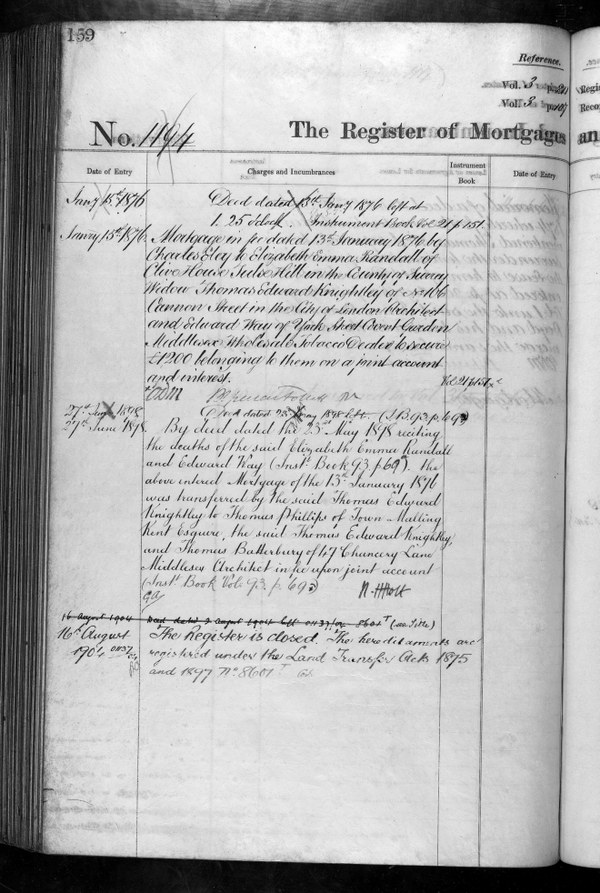 159
Reference.
Vol. 3
Vol. 3 p. 107
No. 1194
The Register of Mortgages an
Date of Entry
Charges and Incumbrances
Instrument Book
Date of Entry
Jany 15th 1876
Deed dated 13th Jany 1876 left at
1. 25 o'clock. Instrument Book Vol 21 p 151
January 15th 1876.
Mortgage in fee dated 13th January 1876 by
Charles Eley to Elizabeth Emma Randall of
Clive House Tulse Hill in the County of Surrey
Widow Thomas Edward Knightley of No 106
Cannon Street in the City of London Architect
and Edward Way of York Street Covent Garden
Middlesex Wholesale Tobacco Dealer to secure
£1200 belonging to them on a joint account
and interest.
Vol 21 p 151
27th June 1898
Deed dated 23rd May 1898 left. (I.B. 93. p. 69)
27th June 1898.
By deed dated the 23rd May 1898 reciting
the deaths of the said Elizabeth Emma Randall
and Edward Way (Inst. Book 93. p 69). the
above entered Mortgage of the 13th January 1876
was transferred by the said Thomas Edward
Knightley to Thomas Phillips of Town Malling
Kent Esquire, the said Thomas Edward Knightley,
and Thomas Batterbury of 47 Chancery Lane
Middlesex Architect in fee upon joint account
(Inst. Book Vol. 93. p. 69)
16 August 1904
Deed dated 3 August 1904 left (see Title)
16th August
1904
The Register is closed. The hereditaments are
registered under the Land Transfer Acts 1875
and 1897 No. 8601